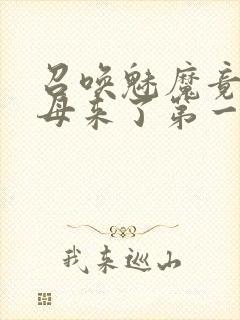 召唤魅魔竟
母来了第一
我来巡山